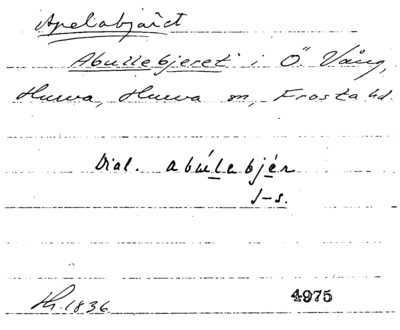 Apelabjäret
Abullebjeret i Ö. Vång,
Hurva, Hurva sn, Frosta hd.
Dial. abúlabjér
J-s.
Lh. 1836.
4975